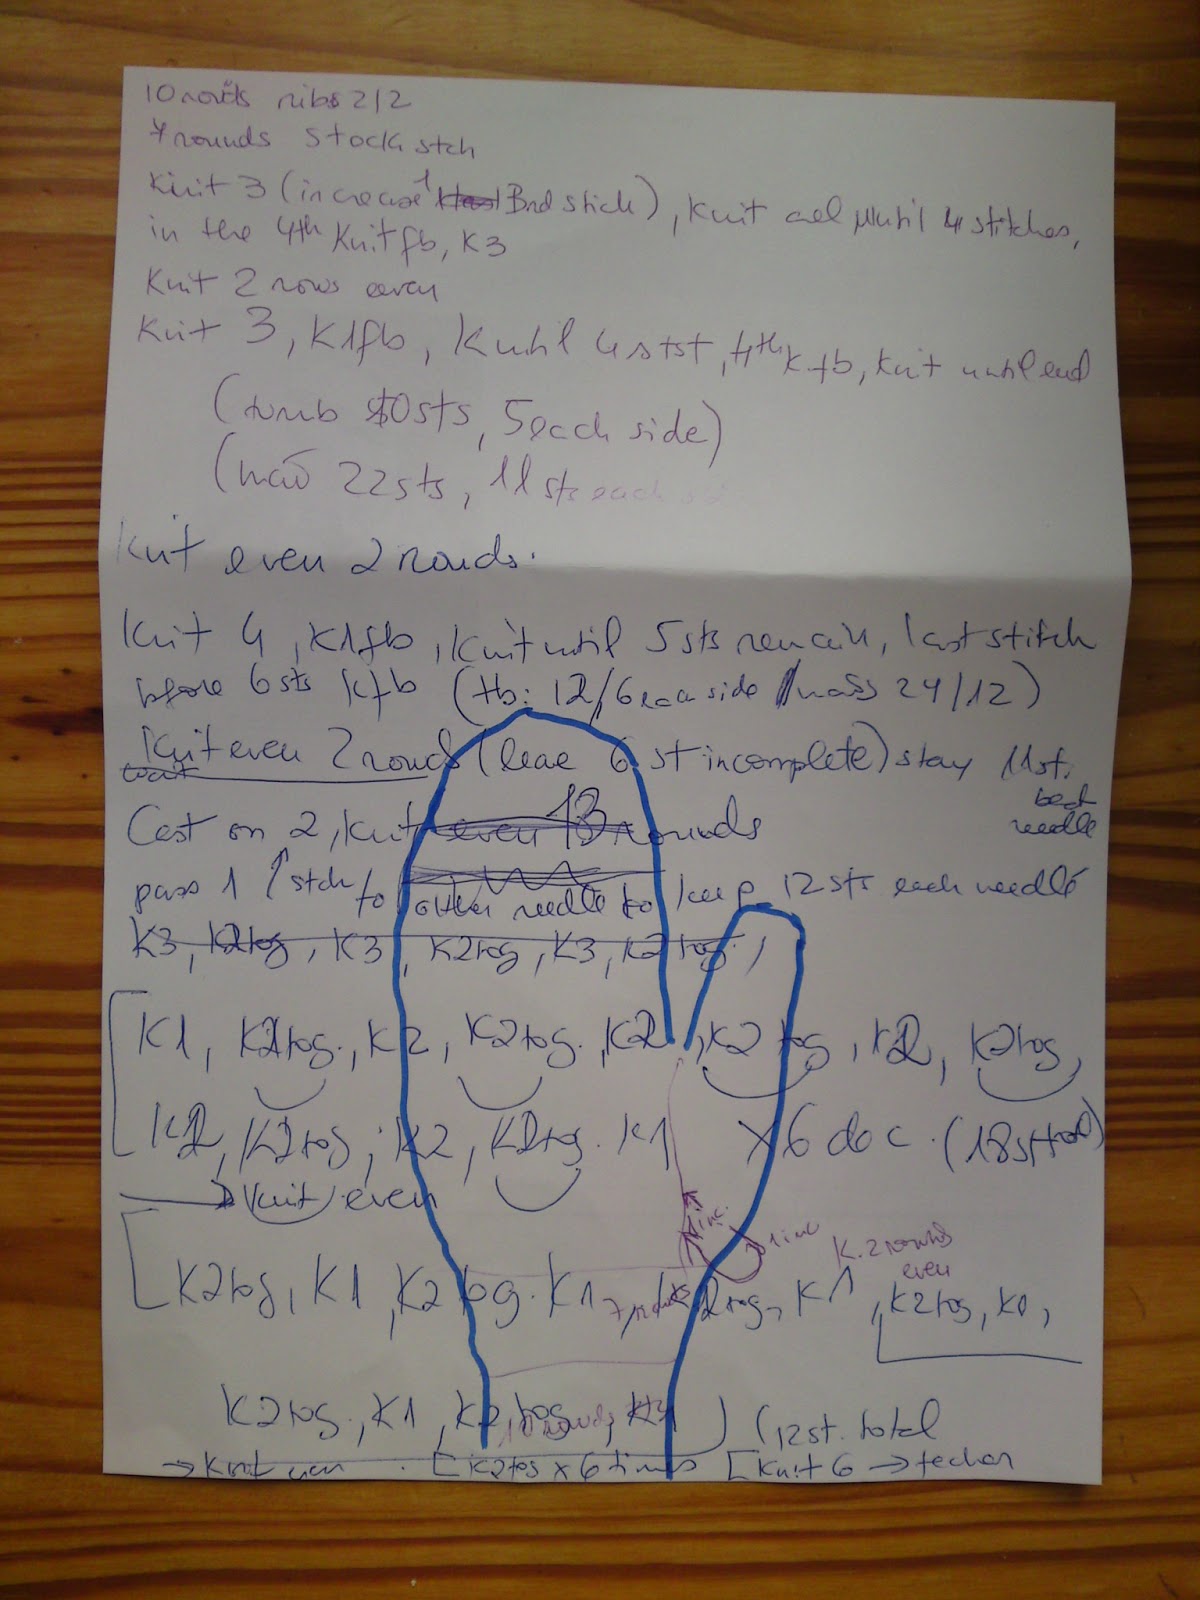 10 rounds ribs 2/2
7 rounds stock stch
Knit 3 (increase 1 3rd stich), Knit all until 4 stitches,
in the 4th Knit fb, K3
Knit 2 rows even
Knit 3, K1fb, K until 4 stst, 4th K fb, Knit until end
(tumb 10sts, 5 each side)
(mão 22sts, 11 sts each
Knit even 2 rouds.
Knit 4, K1fb, Knit until 5 sts remain, last stitch
before 6 sts kfb (tb: 12/6 each side / mãos 24/12)
Knit even 2 rouds (leave 6 st incomplete) stay 11 st.
needle
Cast on 2, knit even 13 rounds
pass 1 stch to other needle to keep 12 sts each needle
K3, K2tog, K3, K2tog, K3, K2tog,
K1, K2tog., K2, K2tog., K2, K2tog, K2, K2tog,
K2, K2tog, K2, K2tog. K1 x6 dec. (18st total)
→ Knit even
1 inc.
1 inc
K. 2 rounds
even
K2tog, K1, K2tog. K1, K2tog, K1, K2tog, K1,
7 rounds
K2tog., K1, K2tog, K1) (12 st. total
10 rounds
→ Knit even . [K2tog x 6 times [Knit 6 → fechar